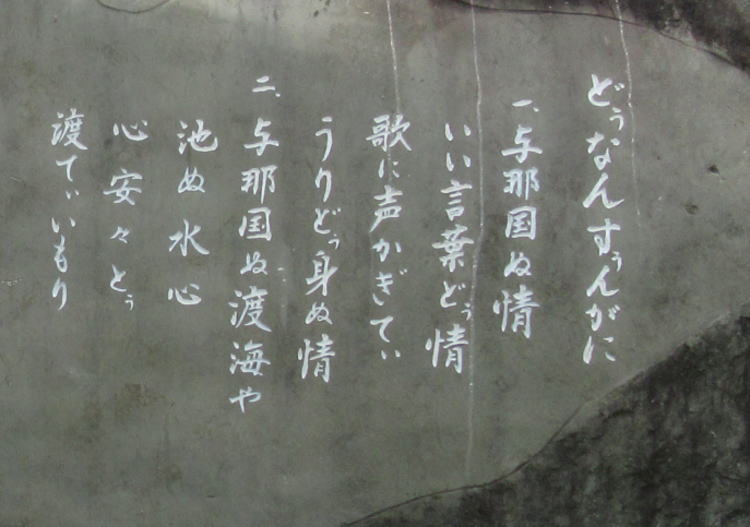 どぅなんすぅんがに
一、与那国ぬ情
いい言葉どぅ情
歌に声かぎてぃ
うりどぅ身ぬ情
二、与那国ぬ渡海や
池ぬ水心
心安々とぅ
渡てぃいもり